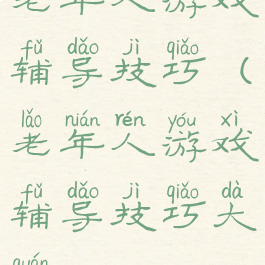 老年人游戏
fǔ dǎo jì qiǎo
辅导技巧（
lǎo nián rén yóu xì
老年人游戏
fǔ dǎo jì qiǎo dà
辅导技巧大
quán